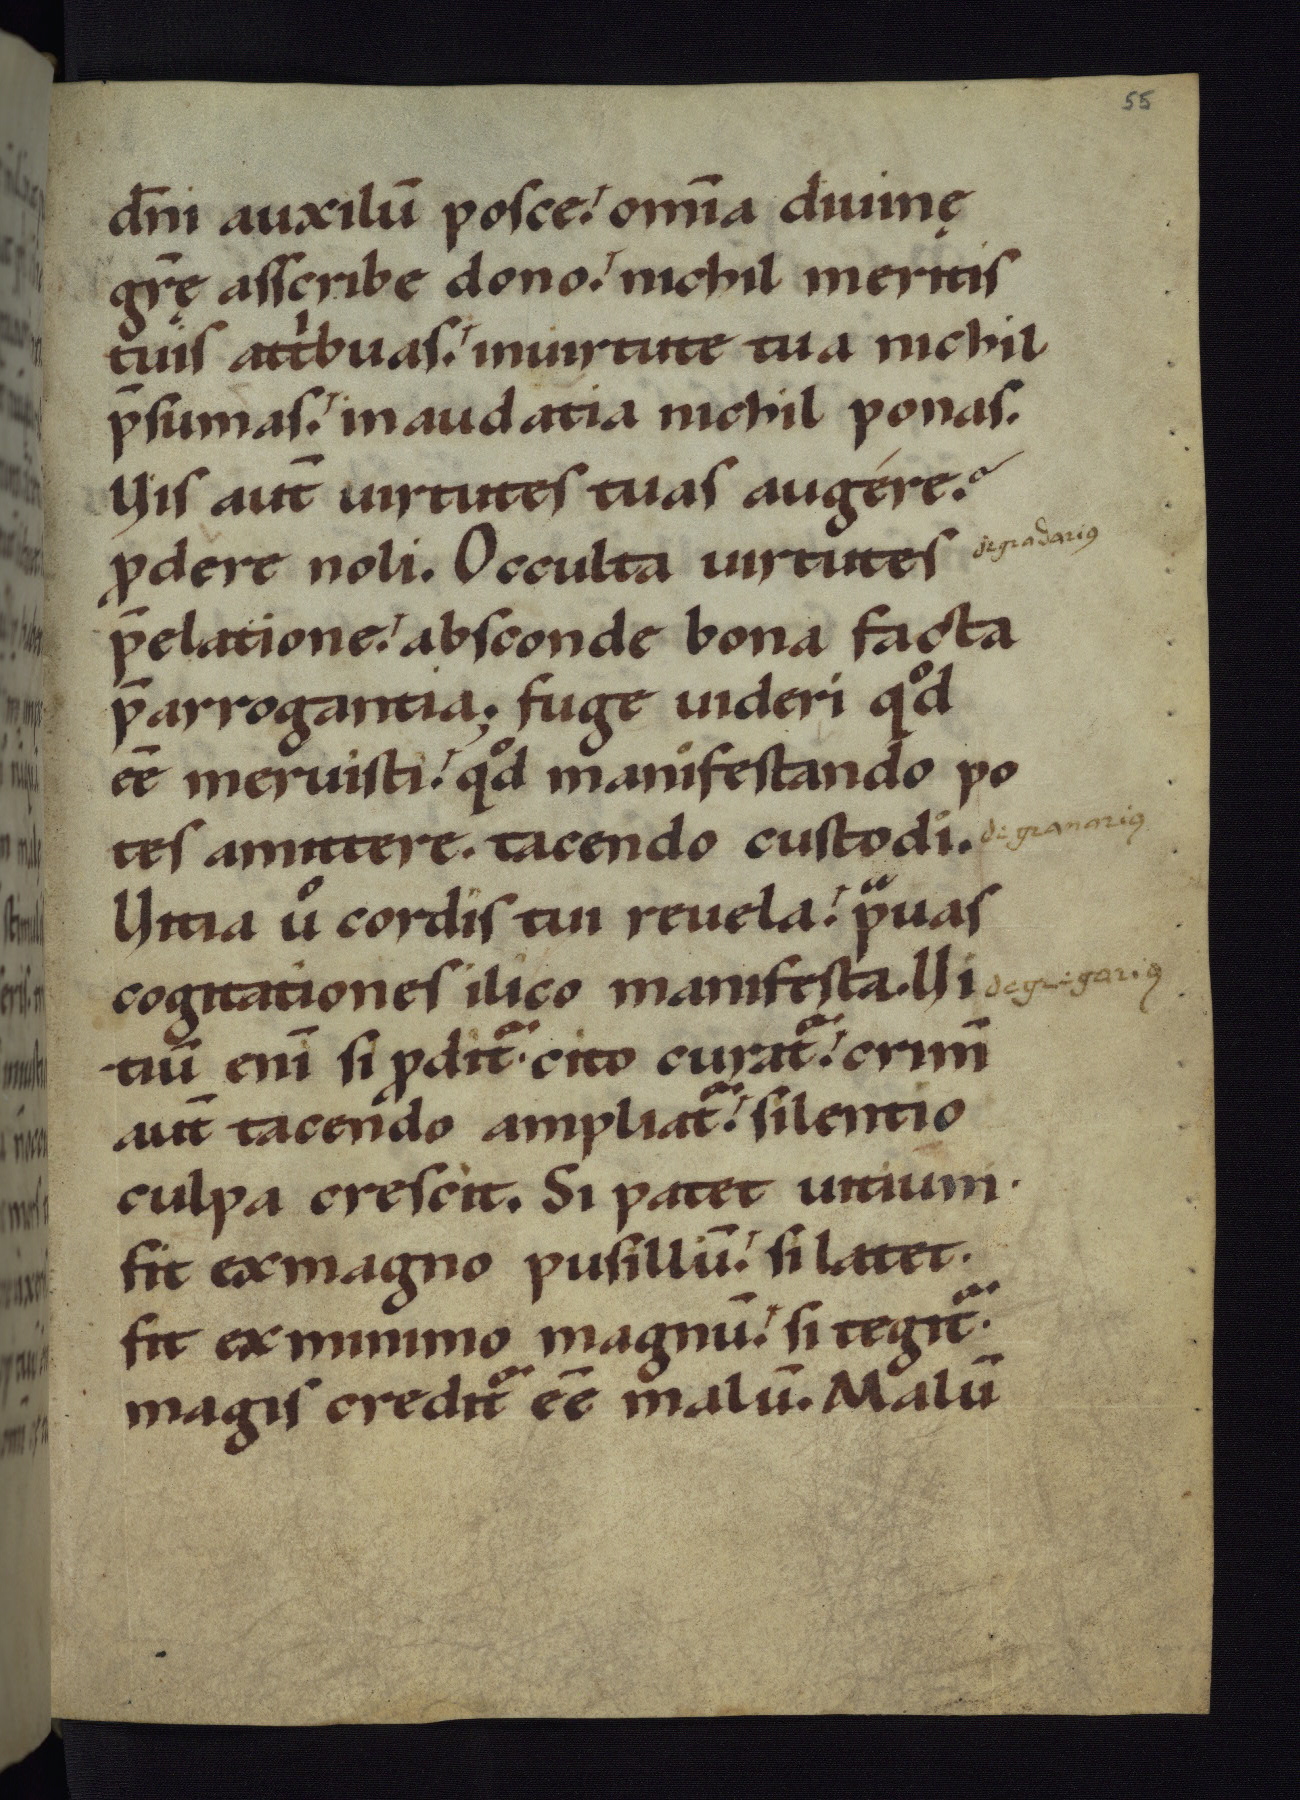 55
dn̄i auxilū posce. omīa diuinę
gr̄ę asscribe dono. nichil meritis
tuis attͥbuas. inuirtute tua nichil
p̄sumas. in audatia nichil ponas.
Uis aut̄ uirtutes tuas augére.
ꝓdere noli. Occulta uirtutes
degradariꝰ
p̄ elatione. absconde bona facta
p̄ arrogantia; fuge uideri qͦd
eē meruisti. qͦd manifestando po
tes amittere. tacendo custodi.
degranariꝰ
Uitia uͦ cordis tui reuela. pͣuas
cogitationes ilico manifesta. Ui
degregariꝰ
tiū eni̅ si ꝓdit᷑. cito curat᷑. crim̄
aut̄ tacendo ampliat᷑. silentio
culpa crescit. Si patet uitium.
fit exmagno pusillū. si latet.
fit ex minimo magnū. si tegit᷑.
magis credit᷑ eē malū. Malū